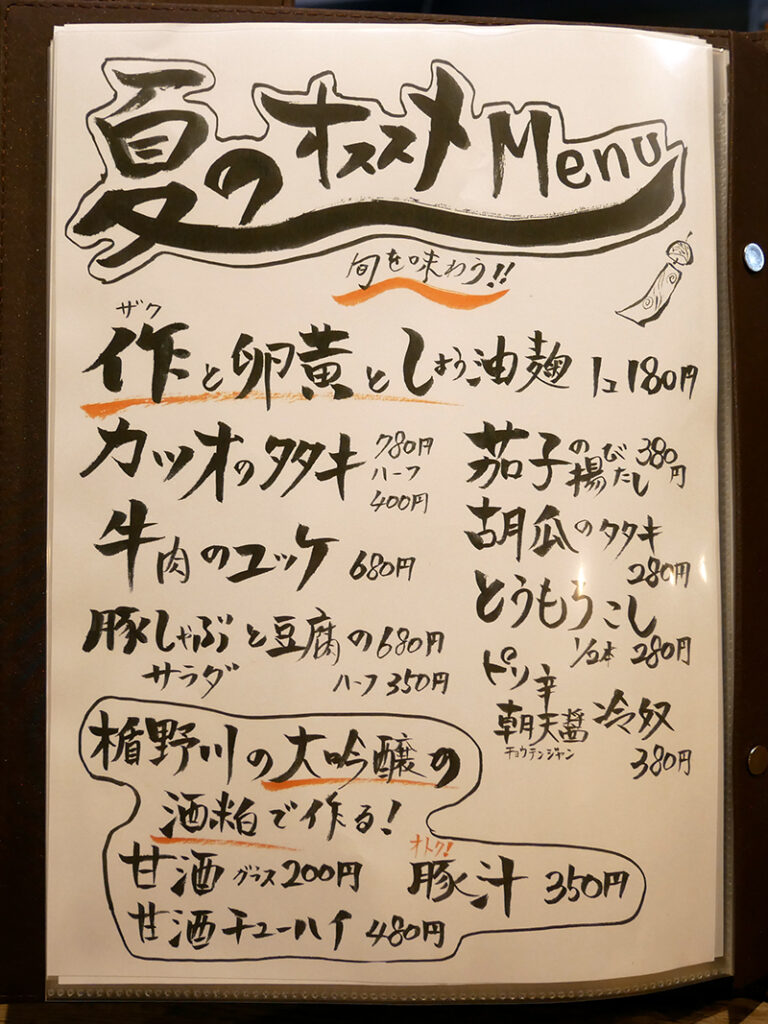 夏のオススメMenu
旬を味わう!!
ザク
作と卵黄としょう油麹 1コ180円
カツオのタタキ 780円
ハーフ
400円
牛肉のユッケ 680円
豚しゃぶと豆腐の 680円
サラダ ハーフ 350円
茄子の揚びたし 380円
胡瓜のタタキ
280円
とうもろこし
1/2本 280円
ピリ辛
朝天醤 冷奴
チョウテンジャン
380円
楯野川の大吟醸の
酒粕で作る!
甘酒 グラス 200円
オトク!
豚汁 350円
甘酒チューハイ 480円